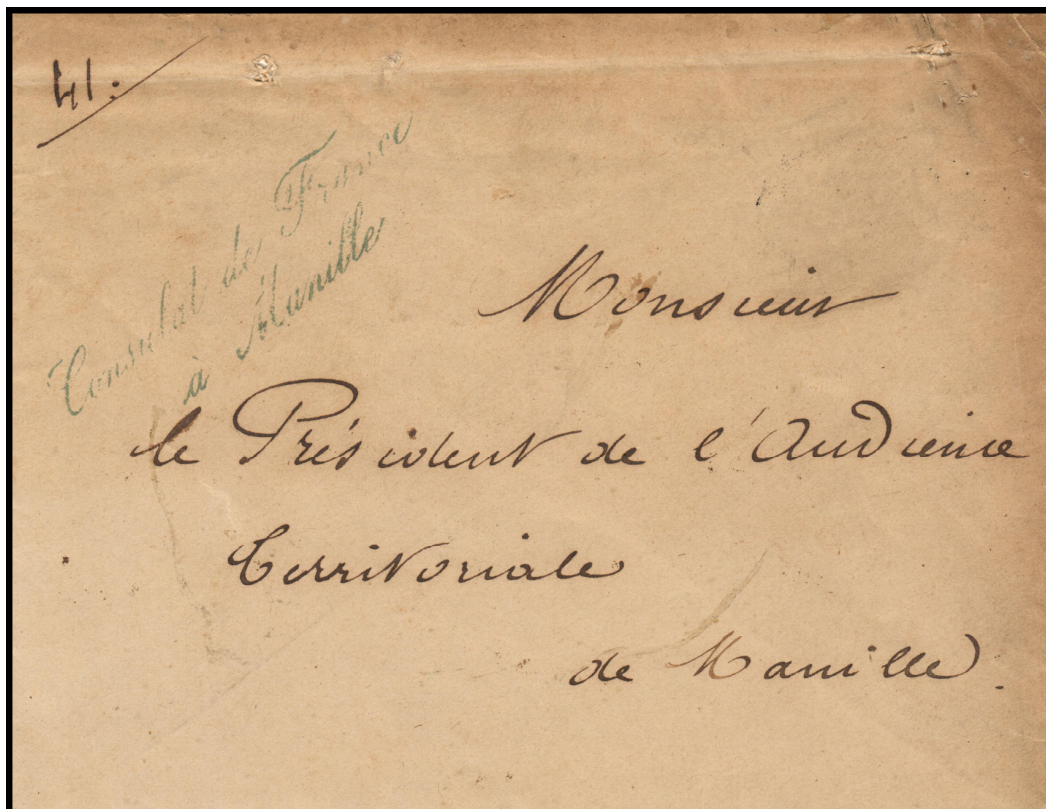 41.
Consulat de France
à Manille
Monsieur
le Président de l'Audience
Territoriale
de Manille.